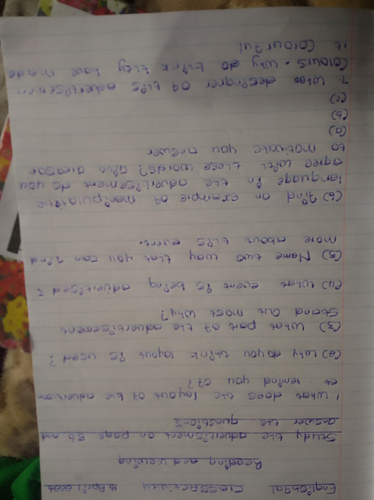 English Gal Class activity 16 April 2025
Reading and viewing
Study the advertisement on page 56 and
answer the questions
1 What does the layout of the advertism
et remind you of?
(2) Why do you think layout is used?
(3) What part of the advertisement
Stand out most why?
(4) What event is being advertised?
(5) Name two way that you can find
more about this event.
(6) find an example of manipulative
language in the advertisement do you
agree with these words? Give a reason
to motivate you answer
(a)
(b)
(c)
7 What designer of this advertisement
Colours. Why do think they have made
it Colourful